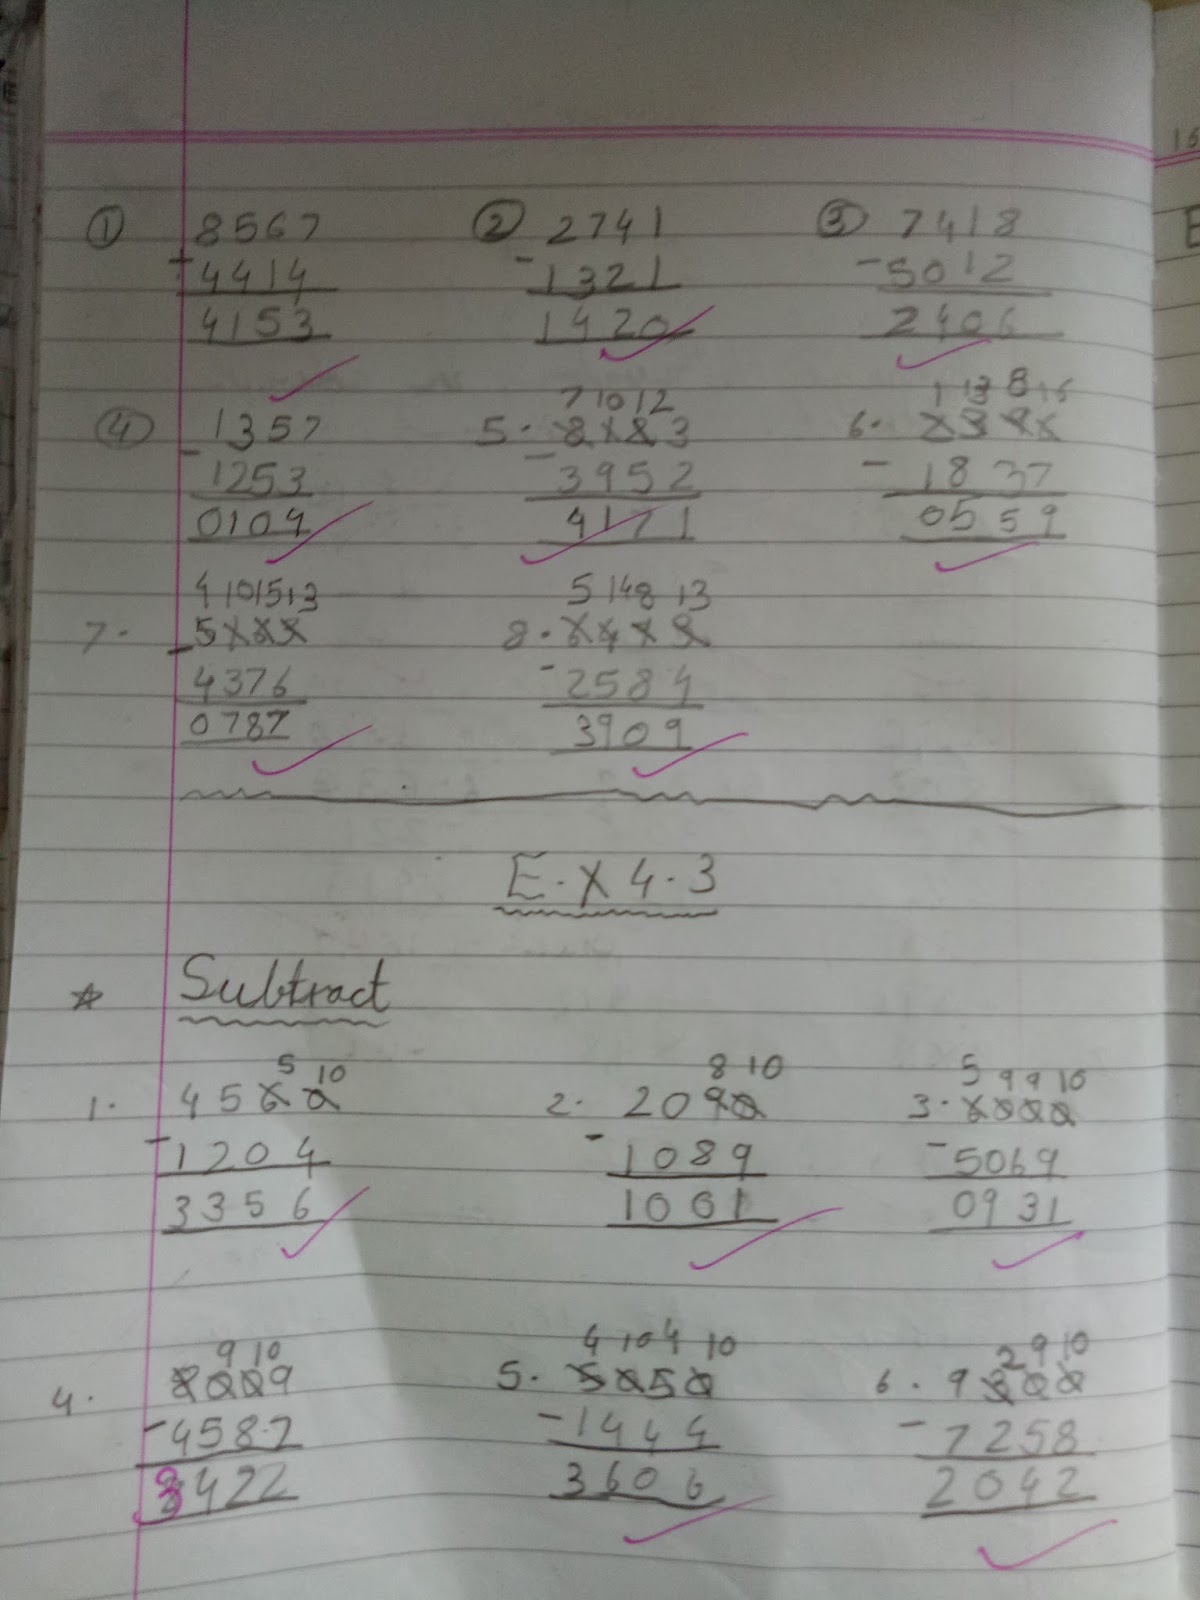 ① 8567 ② 2741 ③ 7418
- 4414 - 1321 - 5012
4153 1420 2406
7 10 12 1 13 8 16
④ 1357 5. 8 3 6.
- 1253 - 3952 - 1837
0104 4171 0559
4 10 15 13 5 14 8 13
7. 5 8.
- 4376 - 2584
0787 3909
E.X 4.3
☆ Subtract
5 10 8 10 5 9 9 10
1. 4560 2. 2090 3. 6000
- 1204 - 1089 - 5069
3356 1001 0931
9 10 4 10 4 10 2 9 10
4. 8009 5. 5050 6. 9300
- 4587 - 1444 - 7258
3422 3606 2042